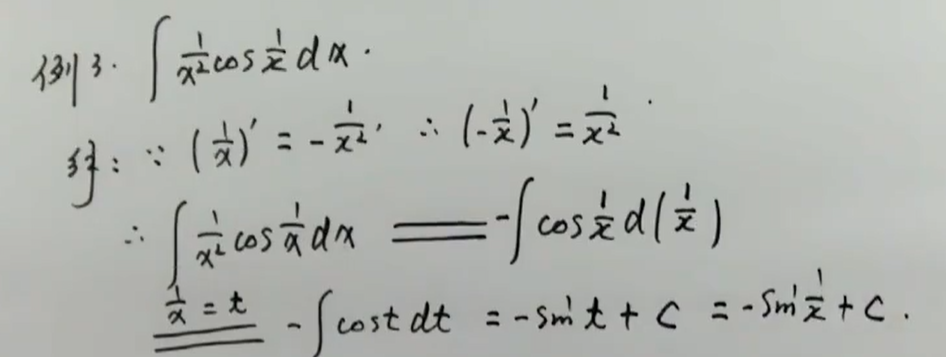 例3. ∫ 1/x² cos 1/x dx.
解: ∵ (1/x)′ = -1/x², ∴ (-1/x)′ = 1/x².
∴ ∫ 1/x² cos 1/x dx = -∫ cos 1/x d(1/x)
1/x = t = -∫ cos t dt = -sin t + C = -sin 1/x + C.